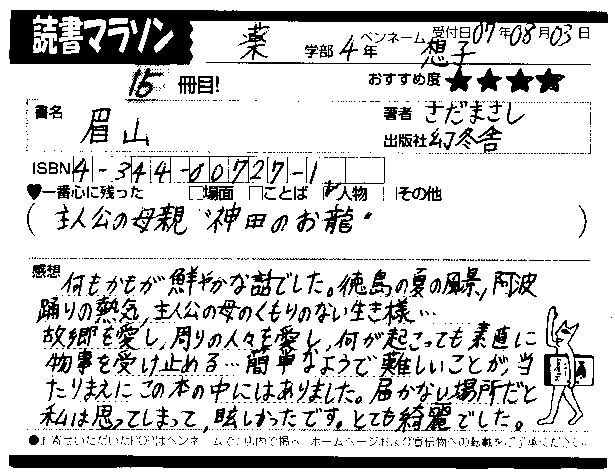 読書マラソン
薬 学部 4年 ペンネーム 想子 受付日07年08月03日
15 冊目! おすすめ度 ★★★★
書名 眉山 著者 さだまさし
出版社 幻冬舎
ISBN 4-344-00727-1
♥一番心に残った □場面 □ことば ☑人物 □その他
( 主人公の母親 "神田のお龍" )
感想 何もかもが鮮やかな話でした。徳島の夏の風景,阿波
踊りの熱気,主人公の母のくもりのない生き様…
故郷を愛し,周りの人々を愛し,何が起こっても素直に
物事を受け止める…簡単なようで難しいことが,当
たりまえにこの本の中にはありました。届かない場所だと
私は思ってしまって,眩しかったです。とても綺麗でした。
●お寄せいただいたPOPはペンネームで店内で掲示・ホームページおよび宣伝物への転載をご了承ください。